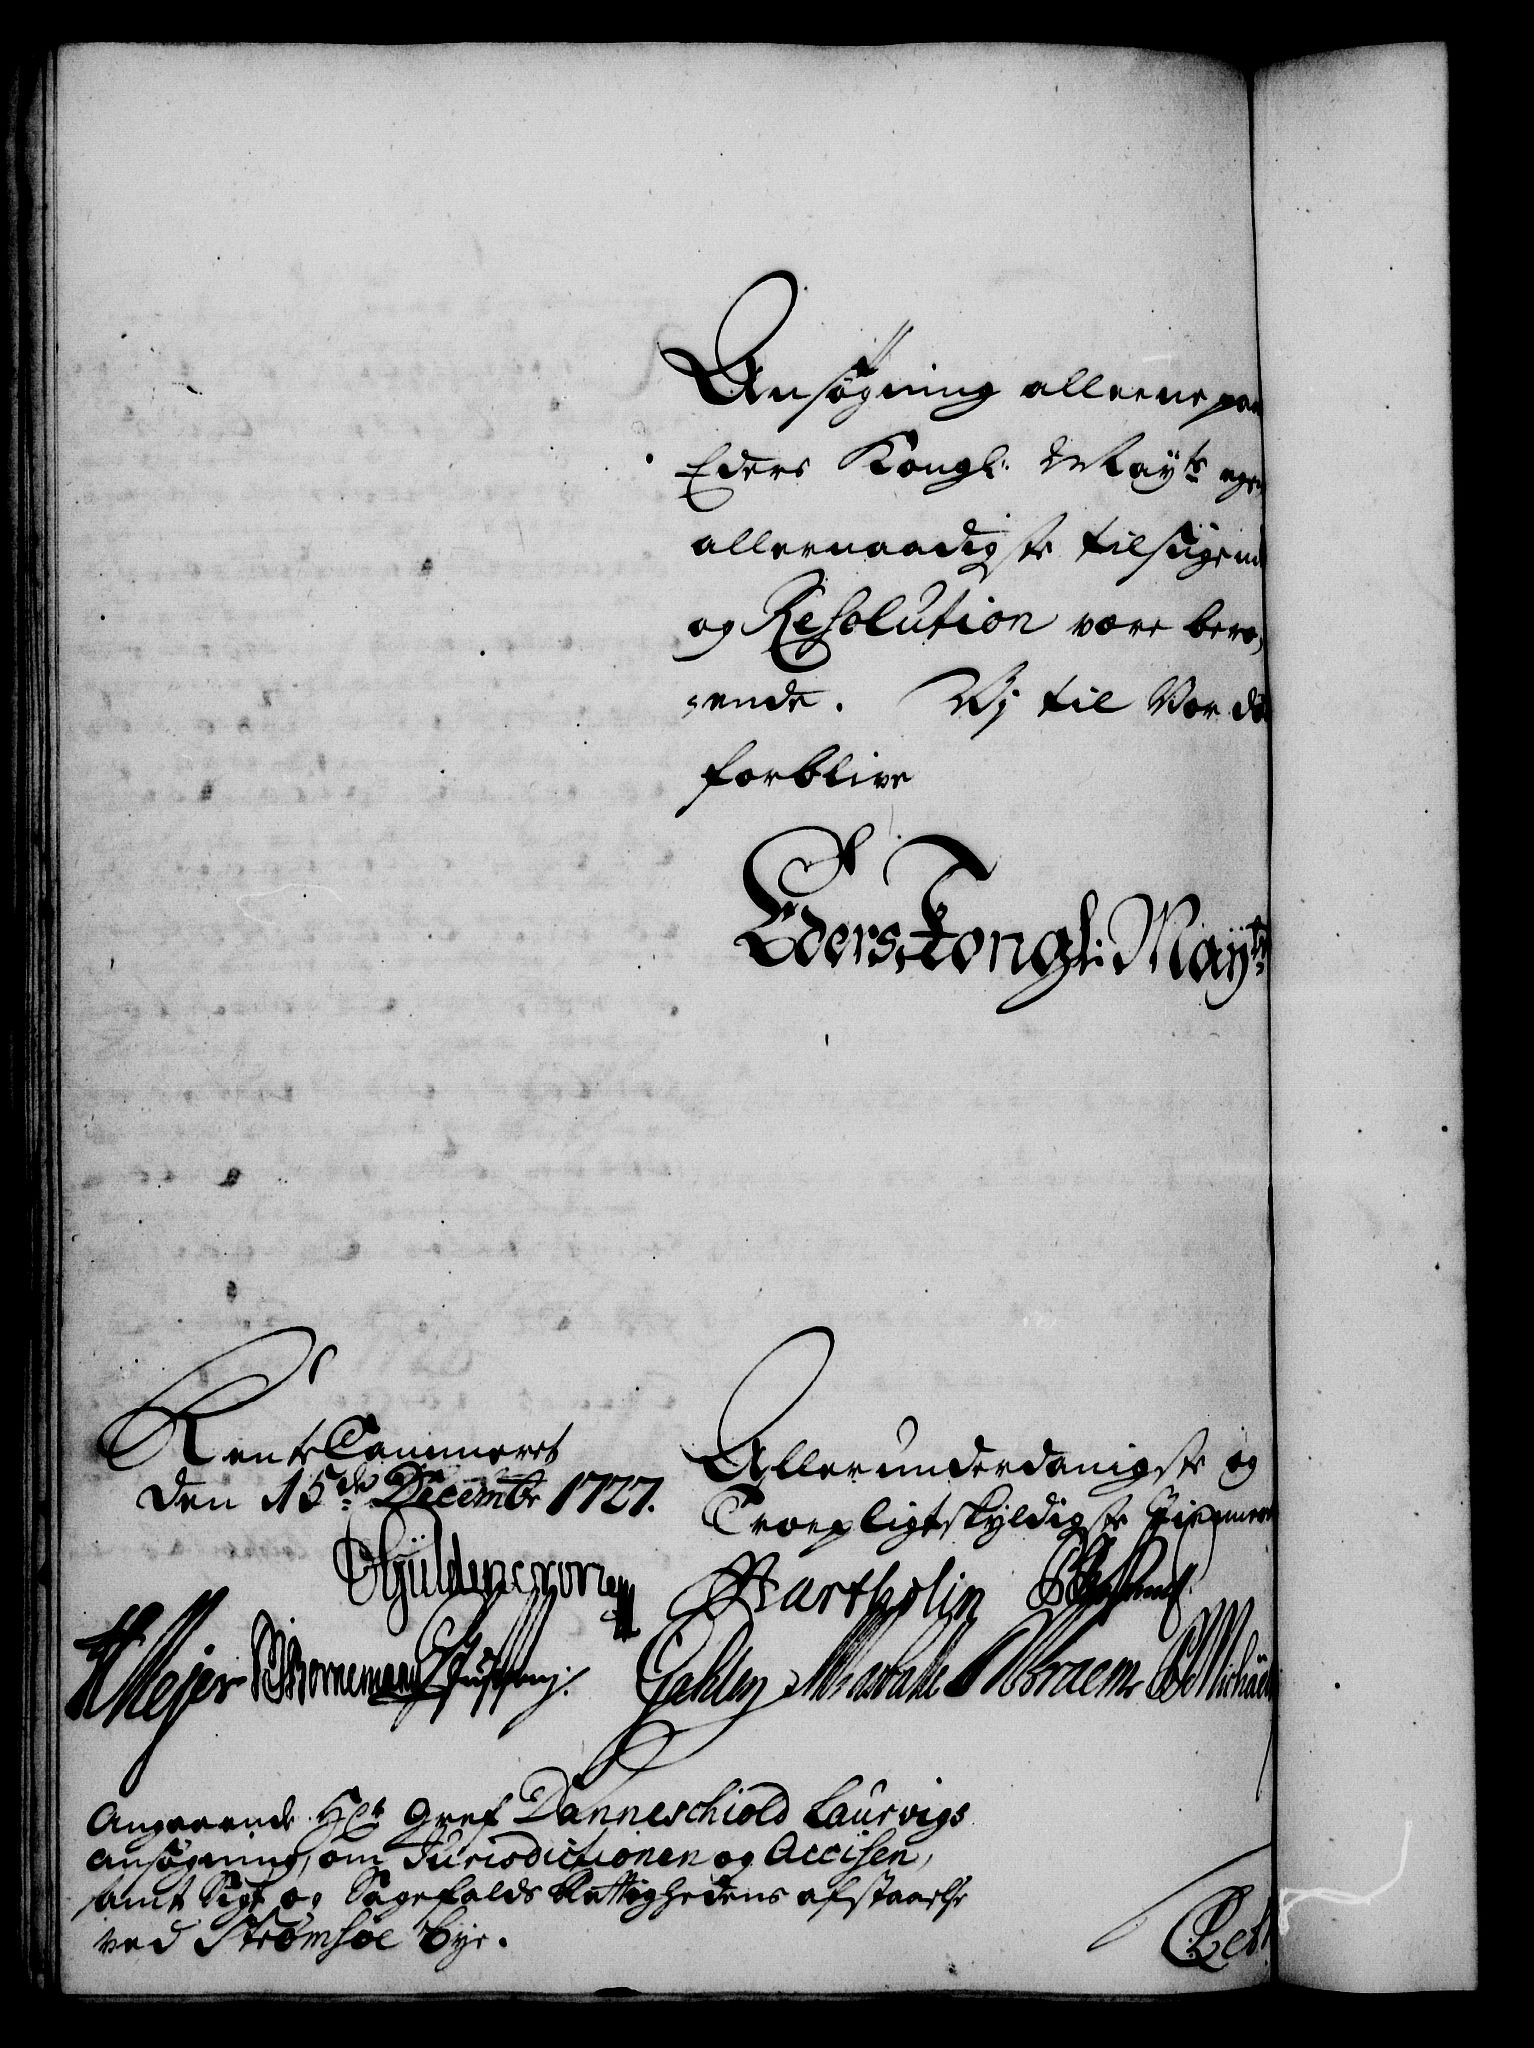 Ansøgning alleene paa
Eders Kongl: May:ts egen
allernaadigste tilsigend
og Resolution være bero,
ende. Vj til Vor dö
forblive
Eders Kongl: May:ts
Rente Cammeret
den 15de Decembr 1727.
Allerunderdanigste og
Troepligtskyldigste Tienere
Güldencrone
Bartholin
HMejer Bornemann
Braem Michäel
Angaaende Hr: Gref Danneschiold Laurvigs
ansøgning, om Jurisdictionen og Accisen,
samt Sigt og Sagefalds Rettighedens afstaaelse
ved Strømsøe Bye.